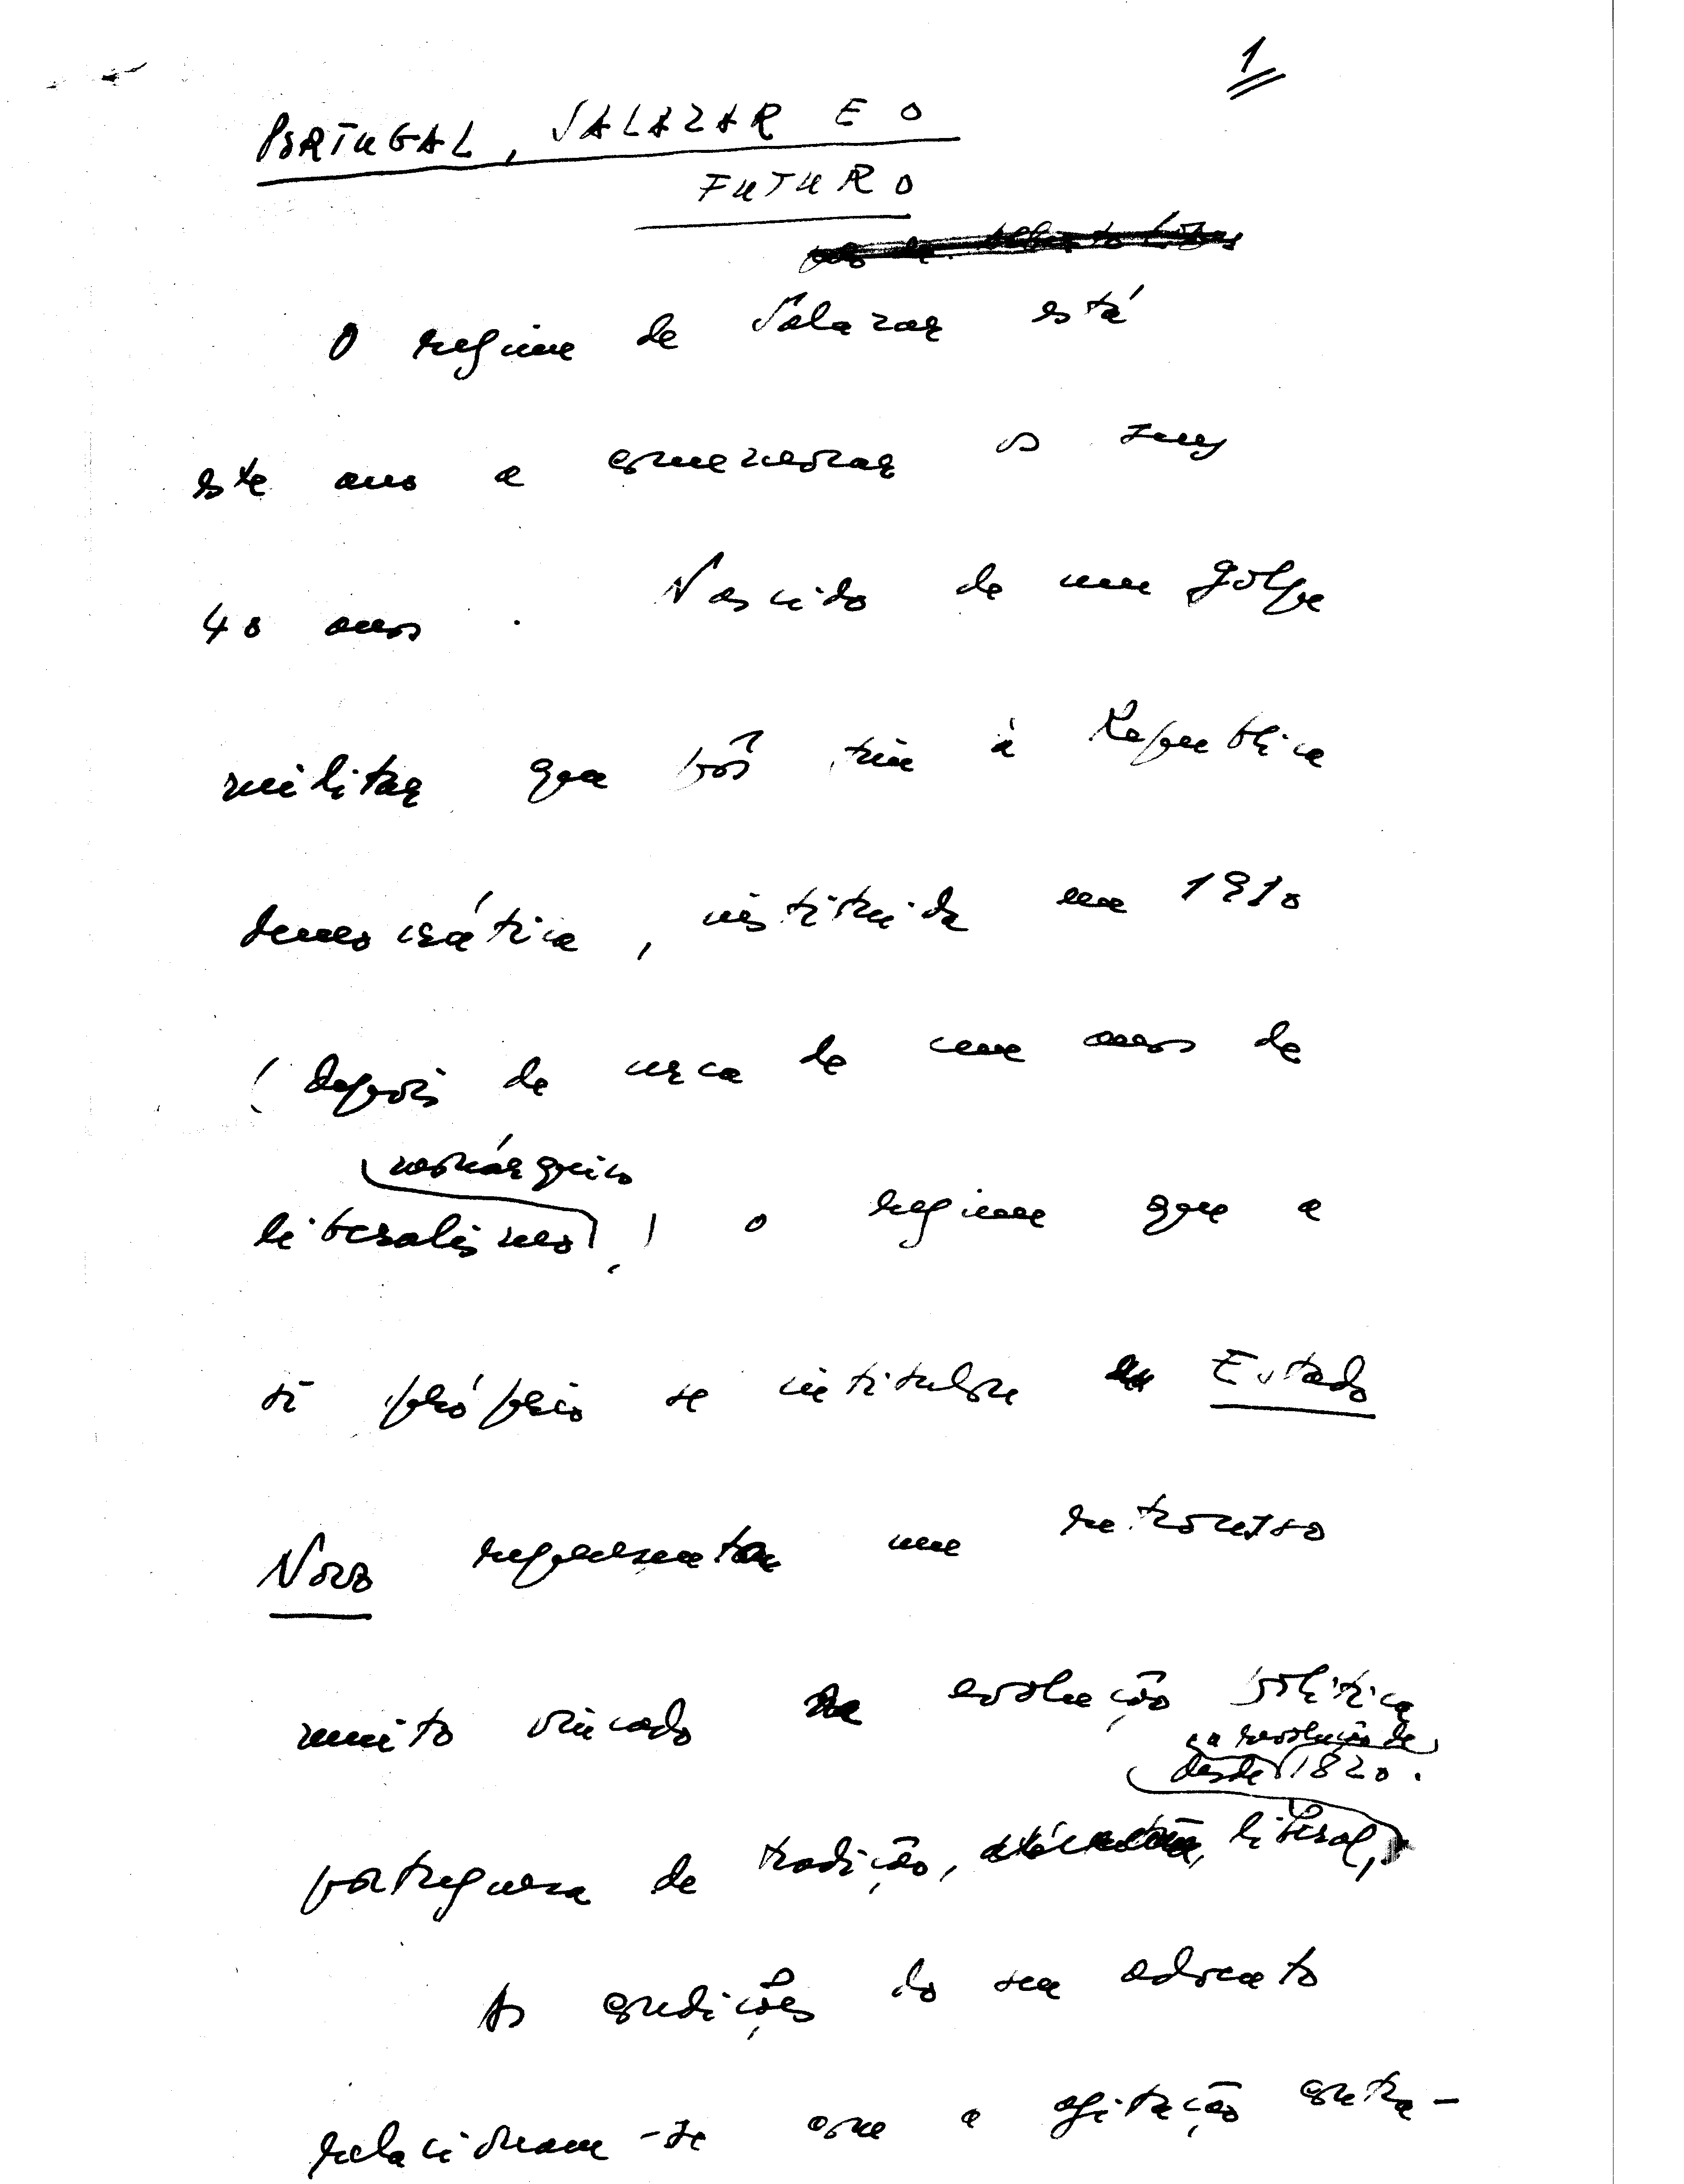 1
PORTUGAL, SALAZAR E O
FUTURO
O regime de Salazar está
este ano a comemorar os seus
40 anos. Nascido de um golpe
militar que pôs fim à República
democrática, instituída em 1910
(depois de cerca de cem anos de
monárquico
liberalismo), o regime que a
si próprio se intitulou de Estado
Novo representa um retrocesso
muito vincado na evolução política
a revolução de
desde 1820.
portuguesa de tradição, liberal,
As condições do seu advento
relacionam-se com a agitação contra-